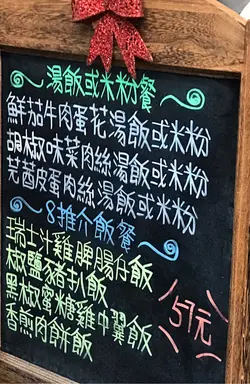 湯飯或米粉餐
鮮茄牛肉蛋花湯飯或米粉
胡椒味菜肉絲湯飯或米粉
芫茜皮蛋肉絲湯飯或米粉
8推介飯餐
瑞士汁雞髀腸仔飯
椒鹽豬扒飯
黑椒蜜糖雞中翼飯
香煎肉餅飯
57元